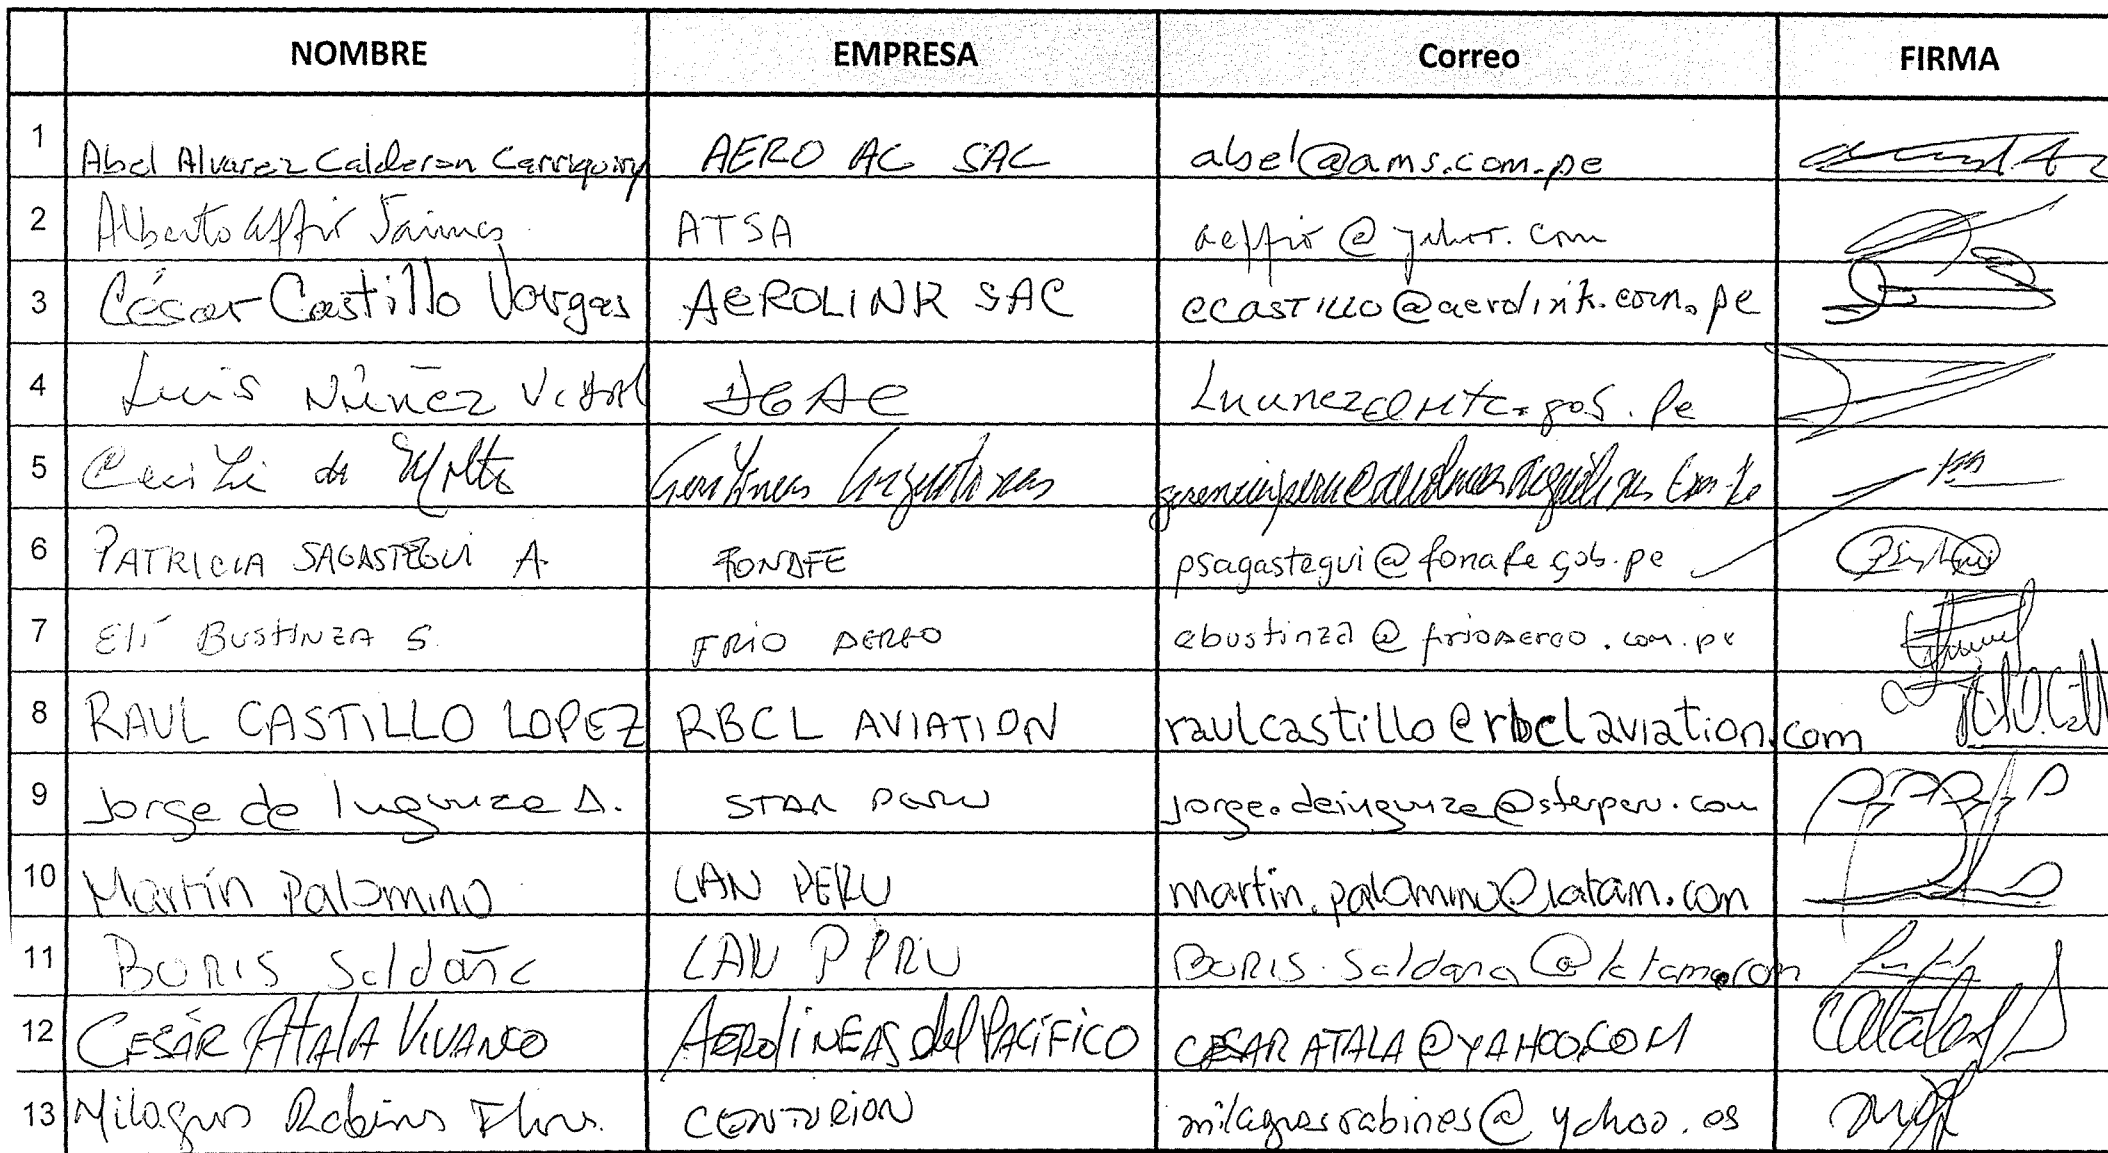 NOMBRE EMPRESA Correo FIRMA
1 Abel Alvarez Calderon Carriquiry AERO AC SAC abel@ams.com.pe
2 Alberto ATSA
3 César Castillo Vargas AEROLINK SAC ccASTILLO@aerolink.com.pe
4 Luis Núñez Vidal DGAC Lnunez@mtc.gob.pe
5 Aerolíneas Argentinas
6 PATRICIA SAGASTEGUI A. FONAFE psagastegui@fonafe.gob.pe
7 Elí BUSTINZA S. FRIO AEREO ebustinza@frioaereo.com.pe
8 RAUL CASTILLO LOPEZ RBCL AVIATION raulcastillo@rbclaviation.com
9 Jorge de STAR PERU
10 Martín Palomino LAN PERU martin.palomino@latam.com
11 BORIS Saldaña LAN PERU BORIS.Saldana@latam.com
12 CESAR ATALA VIVANCO AEROlíNEAS del PACÍFICO CESARATALA@YAHOO.COM
13 Milagros Rabines CENTURION milagrosrabines@yahoo.es